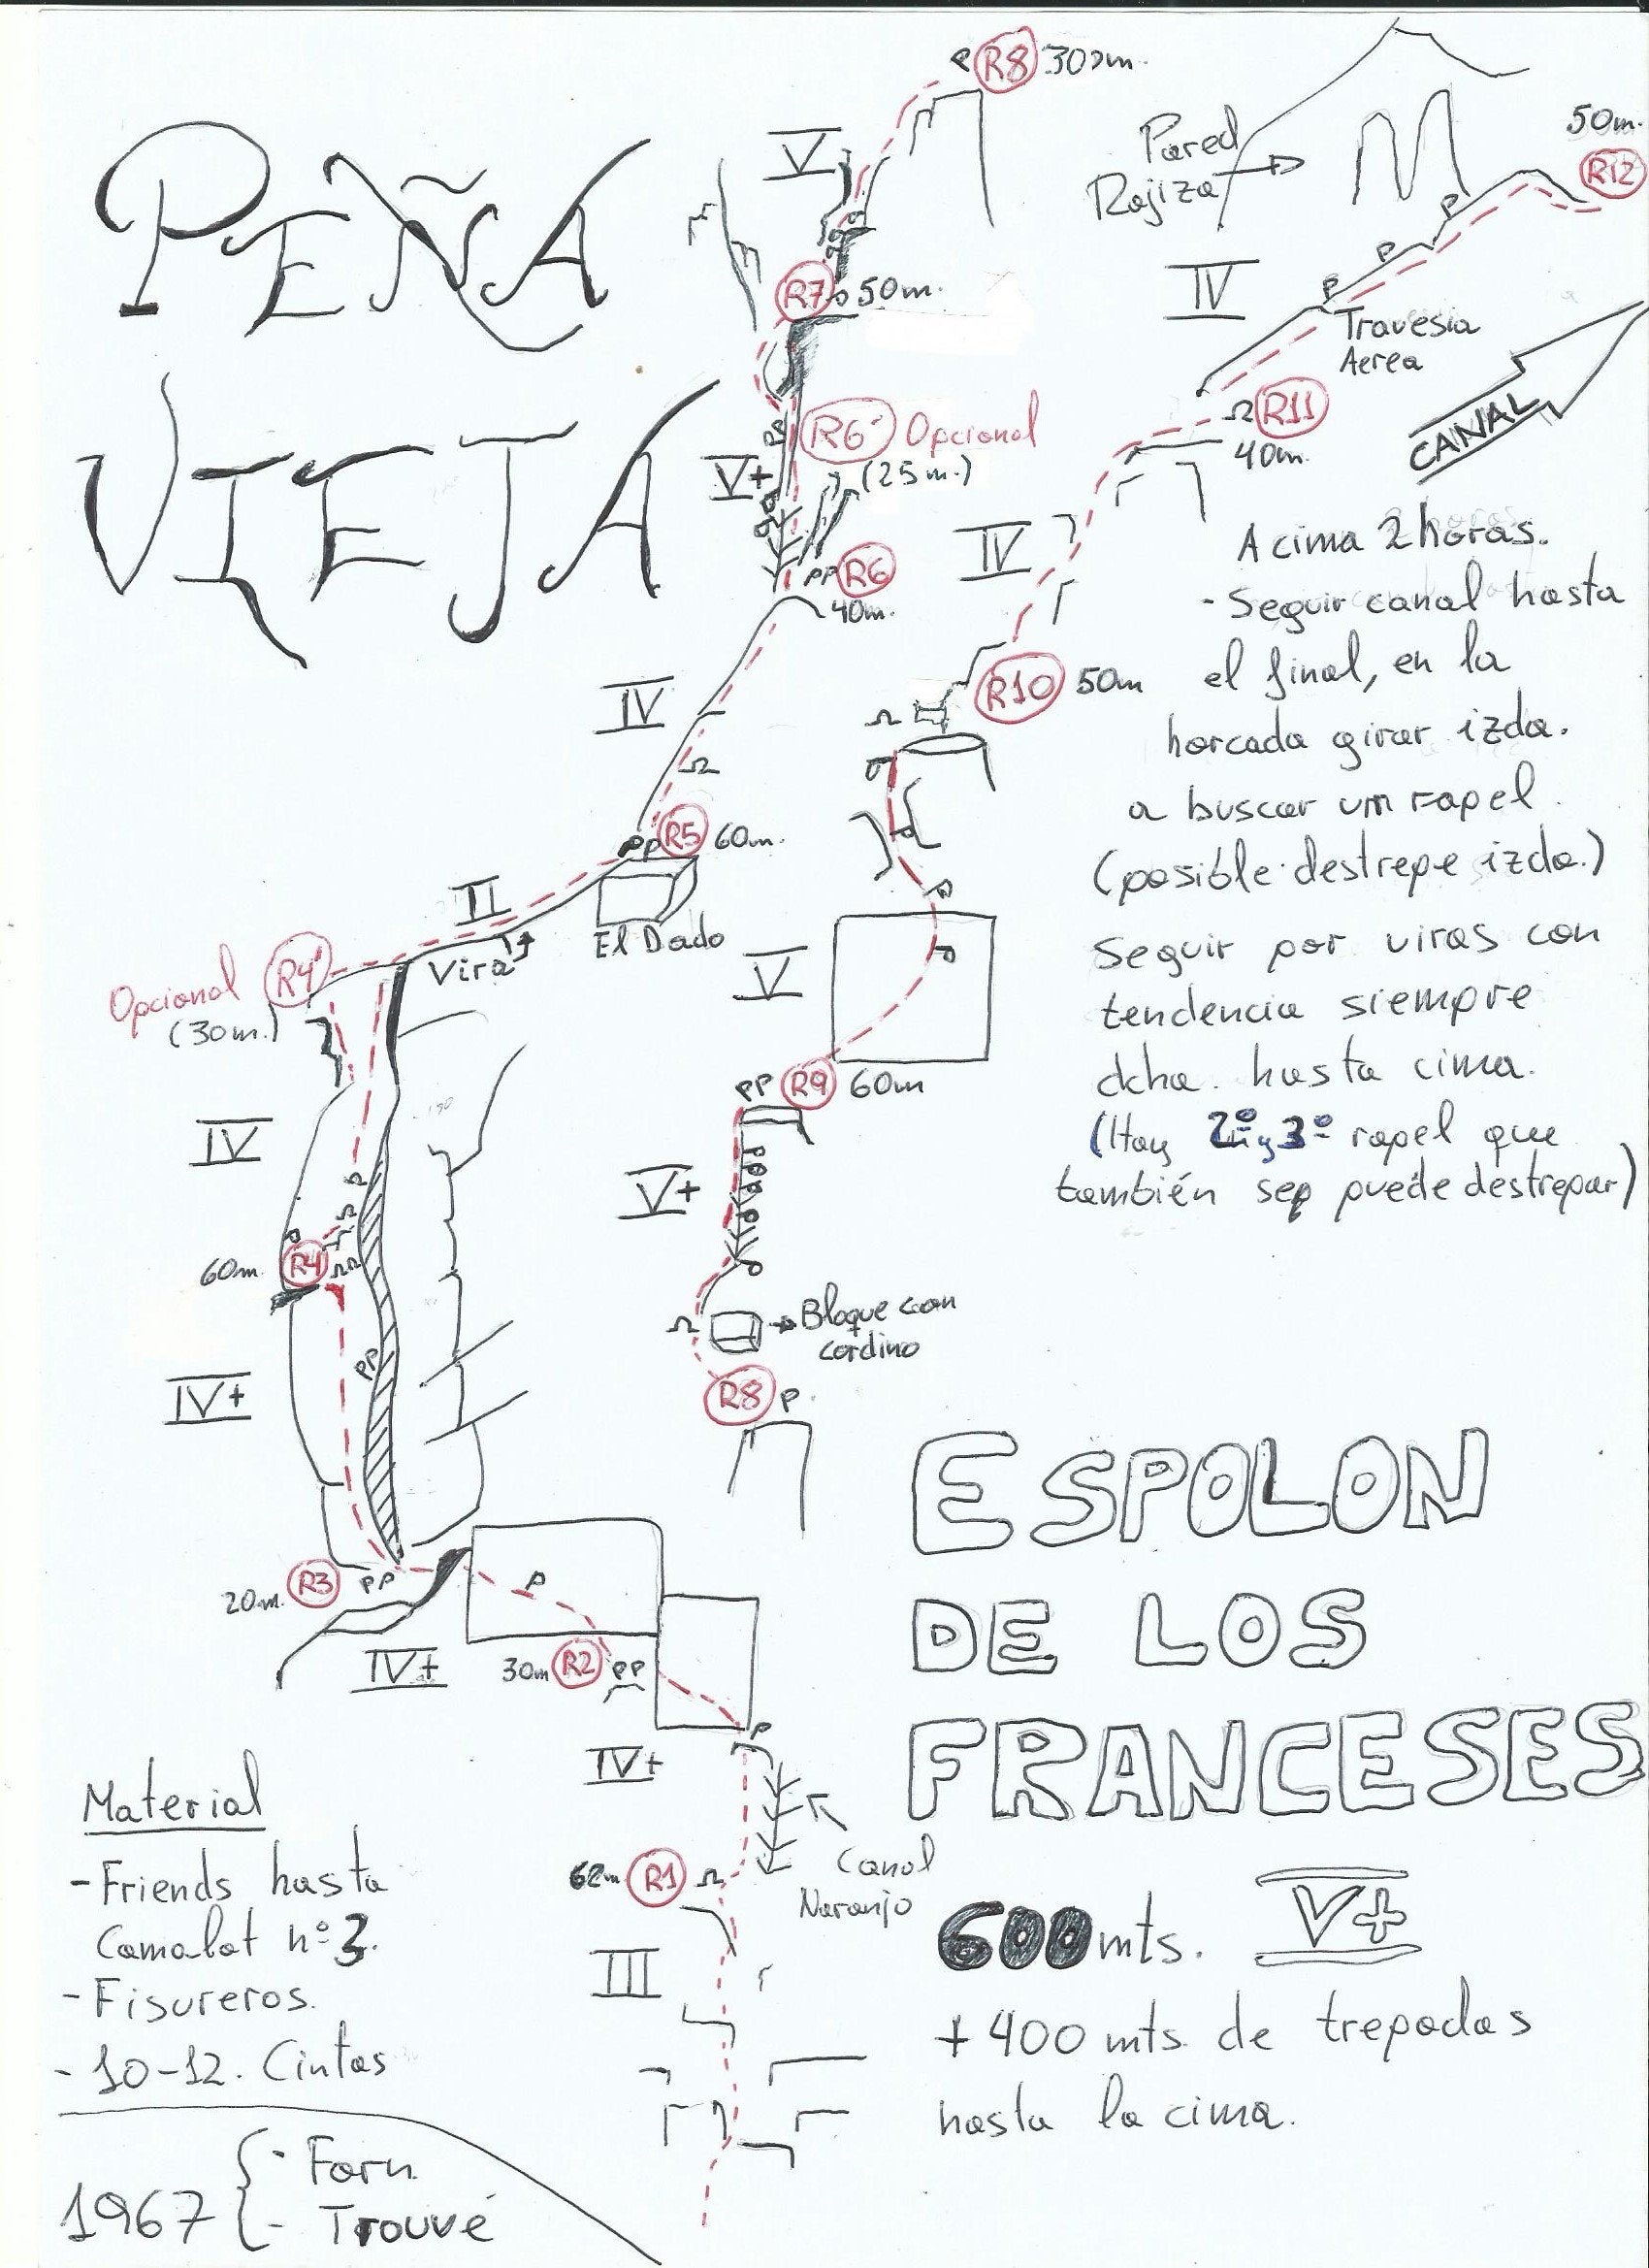 PEÑA
VIEJA
R8 30m.
V
R7 50m.
R6' Opcional
(25m.)
V+
PP R6
40m.
IV
PP R5 60m.
II
El Dado
Vira
Opcional R4'
(30m.)
IV
60m. R4
PP
IV+
20m. R3 PP
P
IV+
30m R2 PP
P
IV+
Canal
Naranjo
62m R1
III
Pared
Rojiza
50m.
R12
P
P
P
IV
Travesia
Aerea
R11
40m.
CANAL
IV
R10 50m
V
PP R9 60m
V+
Bloque con
cordino
R8 P
A cima 2 horas.
- Seguir canal hasta
el final, en la
horcada girar izda.
a buscar un rapel
(posible destrepe izda.)
seguir por viras con
tendencia siempre
dcha. hasta cima.
(Hay 2º y 3º rapel que
también se puede destrepar)
ESPOLON
DE LOS
FRANCESES
600mts. V+
+400 mts. de trepadas
hasta la cima.
Material
- Friends hasta
Camalot nº 3.
- Fisureros.
- 10-12. Cintas
1967 { - Forn
- Trouvé